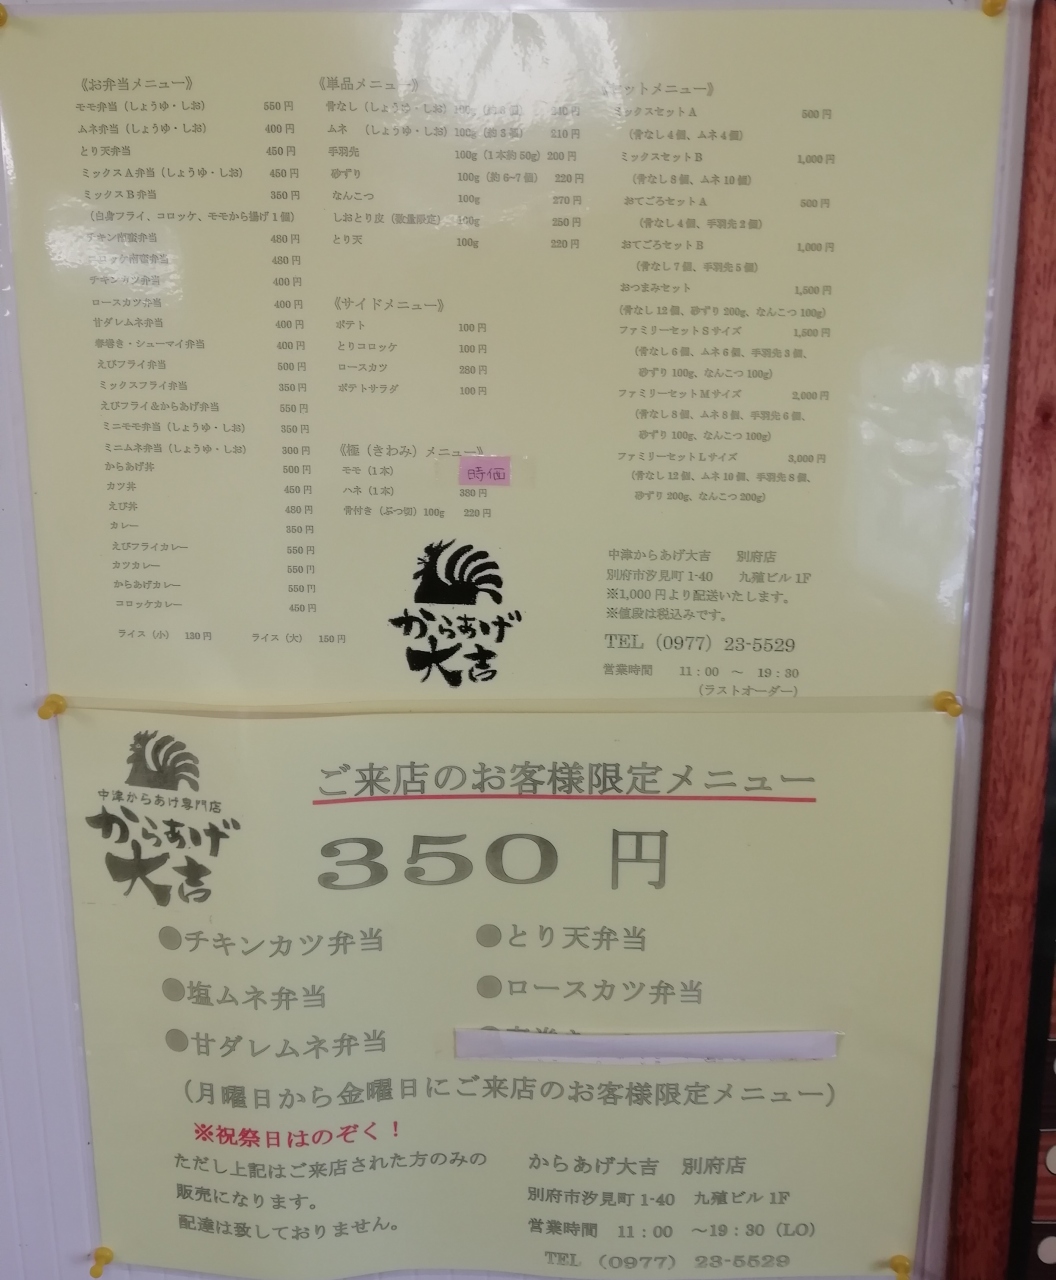 《お弁当メニュー》
モモ弁当（しょうゆ・しお） 550円
ムネ弁当（しょうゆ・しお） 400円
とり天弁当 450円
ミックスA弁当（しょうゆ・しお） 450円
ミックスB弁当 350円
（白身フライ、コロッケ、モモから揚げ1個）
チキン南蛮弁当 480円
コロッケ南蛮弁当 480円
チキンカツ弁当 400円
ロースカツ弁当 400円
甘ダレムネ弁当 400円
春巻き・シューマイ弁当 400円
えびフライ弁当 500円
ミックスフライ弁当 350円
えびフライ＆からあげ弁当 550円
ミニモモ弁当（しょうゆ・しお） 350円
ミニムネ弁当（しょうゆ・しお） 300円
からあげ丼 500円
カツ丼 450円
えび丼 480円
カレー 350円
えびフライカレー 550円
カツカレー 550円
からあげカレー 550円
コロッケカレー 450円
ライス（小） 130円 ライス（大） 150円
《単品メニュー》
骨なし（しょうゆ・しお） 100g 240円
ムネ （しょうゆ・しお） 100g（約3個） 210円
手羽先 100g（1本約50g） 200円
砂ずり 100g（約6~7個） 220円
なんこつ 100g 270円
しおとり皮（数量限定） 100g 250円
とり天 100g 220円
《サイドメニュー》
ポテト 100円
とりコロッケ 100円
ロースカツ 280円
ポテトサラダ 100円
《極（きわみ）メニュー》
モモ（1本） 時価
ハネ（1本） 380円
骨付き（ぶつ切）100g 220円
からあげ
大吉
セットメニュー》
ミックスセットA 500円
（骨なし4個、ムネ4個）
ミックスセットB 1,000円
（骨なし8個、ムネ10個）
おてごろセットA 500円
（骨なし4個、手羽先2個）
おてごろセットB 1,000円
（骨なし7個、手羽先5個）
おつまみセット 1,500円
（骨なし12個、砂ずり200g、なんこつ100g）
ファミリーセットSサイズ 1,500円
（骨なし6個、ムネ6個、手羽先3個、
砂ずり100g、なんこつ100g）
ファミリーセットMサイズ 2,000円
（骨なし8個、ムネ8個、手羽先6個、
砂ずり100g、なんこつ100g）
ファミリーセットLサイズ 3,000円
（骨なし12個、ムネ10個、手羽先8個、
砂ずり200g、なんこつ200g）
中津からあげ大吉 別府店
別府市汐見町1-40 九殖ビル1F
※1,000円より配送いたします。
※値段は税込みです。
TEL（0977）23-5529
営業時間 11：00 ～ 19：30
（ラストオーダー）
中津からあげ専門店
からあげ
大吉
ご来店のお客様限定メニュー
350円
●チキンカツ弁当 ●とり天弁当
●塩ムネ弁当 ●ロースカツ弁当
●甘ダレムネ弁当
（月曜日から金曜日にご来店のお客様限定メニュー）
※祝祭日はのぞく！
ただし上記はご来店された方のみの
販売になります。
配達は致しておりません。
からあげ大吉 別府店
別府市汐見町1-40 九殖ビル1F
営業時間 11：00 ～19：30（LO）
TEL （0977） 23-5529